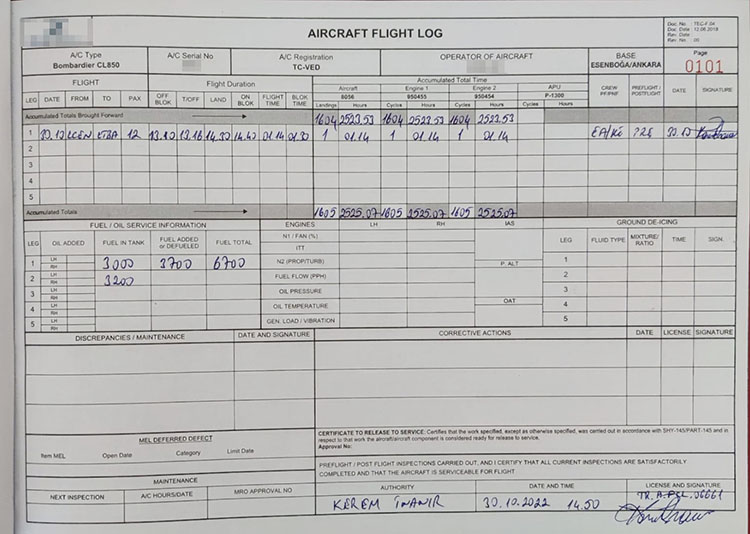 AIRCRAFT FLIGHT LOG
Doc. No. TEC-F.04
Doc. Date 12.06.2019
Rev. Date
Rev. No. 00
A/C Type
Bombardier CL850
A/C Serial No
A/C Registration
TC-VED
OPERATOR OF AIRCRAFT
BASE
ESENBOĞA/ANKARA
Page
0101
FLIGHT
Flight Duration
Accumulated Total Time
Aircraft Engine 1 Engine 2 APU
8056 950455 950454 P-1300
LEG DATE FROM TO PAX OFF BLOK T/OFF LAND ON BLOK FLIGHT TIME BLOK TIME Landings Hours Cycles Hours Cycles Hours Cycles Hours CREW PF/PNF PREFLIGHT / POSTFLIGHT DATE SIGNATURE
Accumulated Totals Brought Forward 1604 2523.53 1604 2523.53 1604 2523.53
1 LTBA 12 13.10 13.16 14.30 14.40 01.14 01.30 1 01.14 1 01.14 1 01.14
2
3
4
5
Accumulated Totals 1605 2525.07 1605 2525.07 1605 2525.07
FUEL / OIL SERVICE INFORMATION
LEG OIL ADDED FUEL IN TANK FUEL ADDED or DEFUELED FUEL TOTAL
1 LH RH 3000 3700 6700
2 LH RH 3200
3 LH RH
4 LH RH
5 LH RH
ENGINES LH RH IAS
N1 / FAN (%)
ITT
N2 (PROP/TURB) P. ALT
FUEL FLOW (PPH)
OIL PRESSURE
OIL TEMPERATURE OAT
GEN. LOAD / VIBRATION
GROUND DE-ICING
LEG FLUID TYPE MIXTURE/ RATIO TIME SIGN.
1
2
3
4
5
DISCREPANCIES / MAINTENANCE DATE AND SIGNATURE CORRECTIVE ACTIONS DATE LICENSE SIGNATURE
MEL DEFERRED DEFECT
Item MEL Open Date Category Limit Date
MAINTENANCE
NEXT INSPECTION A/C HOURS/DATE MRO APPROVAL NO
CERTIFICATE TO RELEASE TO SERVICE: Certifies that the work specified, except as otherwise specified, was carried out in accordance with SHY-145/PART-145 and in
respect to that work the aircraft/aircraft component is considered ready for release to service.
Approval No:
PREFLIGHT / POST FLIGHT INSPECTIONS CARRIED OUT, AND I CERTIFY THAT ALL CURRENT INSPECTIONS ARE SATISFACTORILY
COMPLETED AND THAT THE AIRCRAFT IS SERVICEABLE FOR FLIGHT
AUTHORITY DATE AND TIME LICENSE AND SIGNATURE
KEREM İNANIR 30.10.2022 14.50 TR.A.PCL.06661